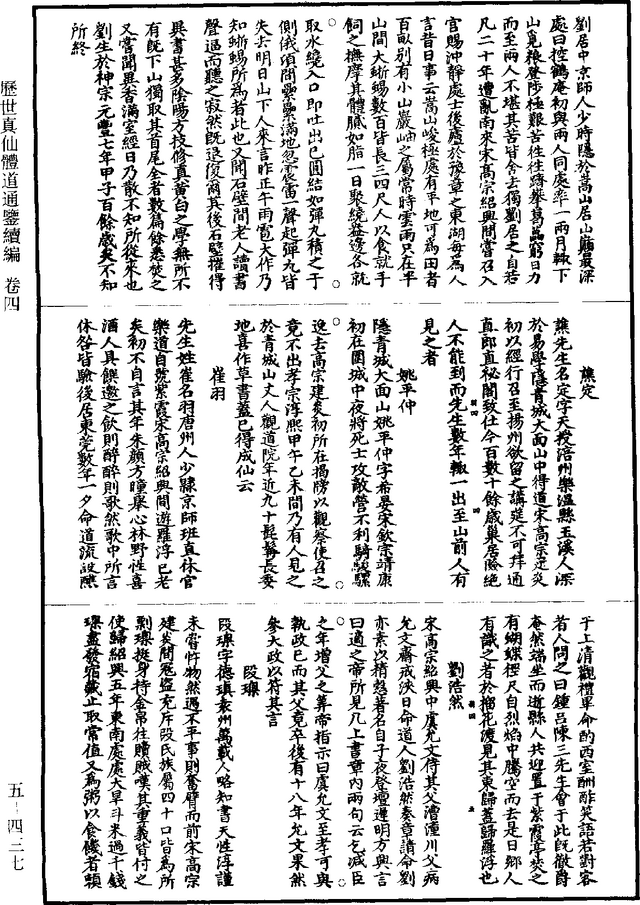 劉居中京師人少時隱於嵩山居山巔最深
處曰控鶴庵初與兩人同處率一兩月輒下
山覓糧登陟極艱苦往往躋攀葛藟窮日力
而至兩人不堪其苦皆舍去獨劉居之自若
凡二十年遭亂南來宋高宗紹興間嘗召入
官賜沖靜處士後廬於豫章之東湖每為人
言昔日事云嵩山峻極處有平地可為田者
百畝別有小山巖岫之屬常時雲雨只在半
山間大蜥蜴數百皆長三四尺人以食就手
飼之撫摩其體膩如脂一日聚繞盎邊各就
取水纔入口即吐出已圓結如彈丸積之于
側俄頃間纍纍滿地忽震雷一聲起彈丸皆
失去明日山下人來言昨正午雨雹大作乃
知蜥蜴所為者此也又聞石壁間老人讀書
聲逼而聽之寂然既退復爾其後石壁摧得
異書甚多陰陽方技修真黃白之學無所不
有既下山獨取其首尾全者數篇餘悉焚之
又嘗聞異香滿室經日乃散不知所從來也
劉生於神宗元豐七年甲子百餘歲矣不知
所終
歷世真仙體道通鑒續編 卷四
譙定
譙先生名定字天授涪州樂溫縣玉溪人深
於易學隱青城大面山中得道宋高宗建炎
初以經行召至揚州欲留之講筵不可拜通
直郎直秘閣致仕今百數十餘歲巢居險絕
人不能到而先生數年輒一出至山前人有
見之者
姚平仲
隱青城大面山姚平仲字希晏宋欽宗靖康
初在圍城中夜將死士攻敵營不利騎駿騾
逸去高宗建炎初所在揭牓以觀察使召之
竟不出孝宗淳熙甲午乙未間乃有人見之
於青城山丈人觀道院年近九十髭髯長委
地喜作草書蓋已得成仙云
崔羽
先生姓崔名羽唐州人少隸京師班直休官
樂道自號紫霞宋高宗紹興間遊羅浮已老
矣初不自言其年朱顏方瞳舉心林野性喜
酒人具饌邀之飲則醉醉則歌然歌中所言
休咎皆驗後居東莞數年一夕命道流設醮
于上清觀禮畢命酌西室酬酢笑語若對客
者人問之曰鍾呂陳三先生會于此既徹爵
奄然端坐而逝縣人共迎置于紫霞亭焚之
有蝴蝶徑尺自烈焰中騰空而去是日鄉人
有識之者於榴花渡見其東歸蓋歸羅浮也
劉浩然
宋高宗紹興中虞允文侍其父漕潼川父病
允文齋戒浹日命道人劉浩然奏章請命劉
亦素以精愨著名自子夜登壇遲明方興言
曰適之帝所見几上書章內兩句云乞減臣
之年增父之算帝指示曰虞允文至孝可與
執政已而其父竟卒後有十八年允文果然
參大政以符其言
段璪
段璪字德璜袁州萬載人略知書天性淳謹
未嘗忤物然遇不平事則奮臂而前宋高宗
建炎間寇盜充斥段氏族屬四十口皆為所
剽璪挺身持金帛往贖賊嘆其重義皆付之
使歸紹興五年東南處處大旱斗米過千錢
璪盡發宿藏止取常值又為粥以食饑者類
五-四三七